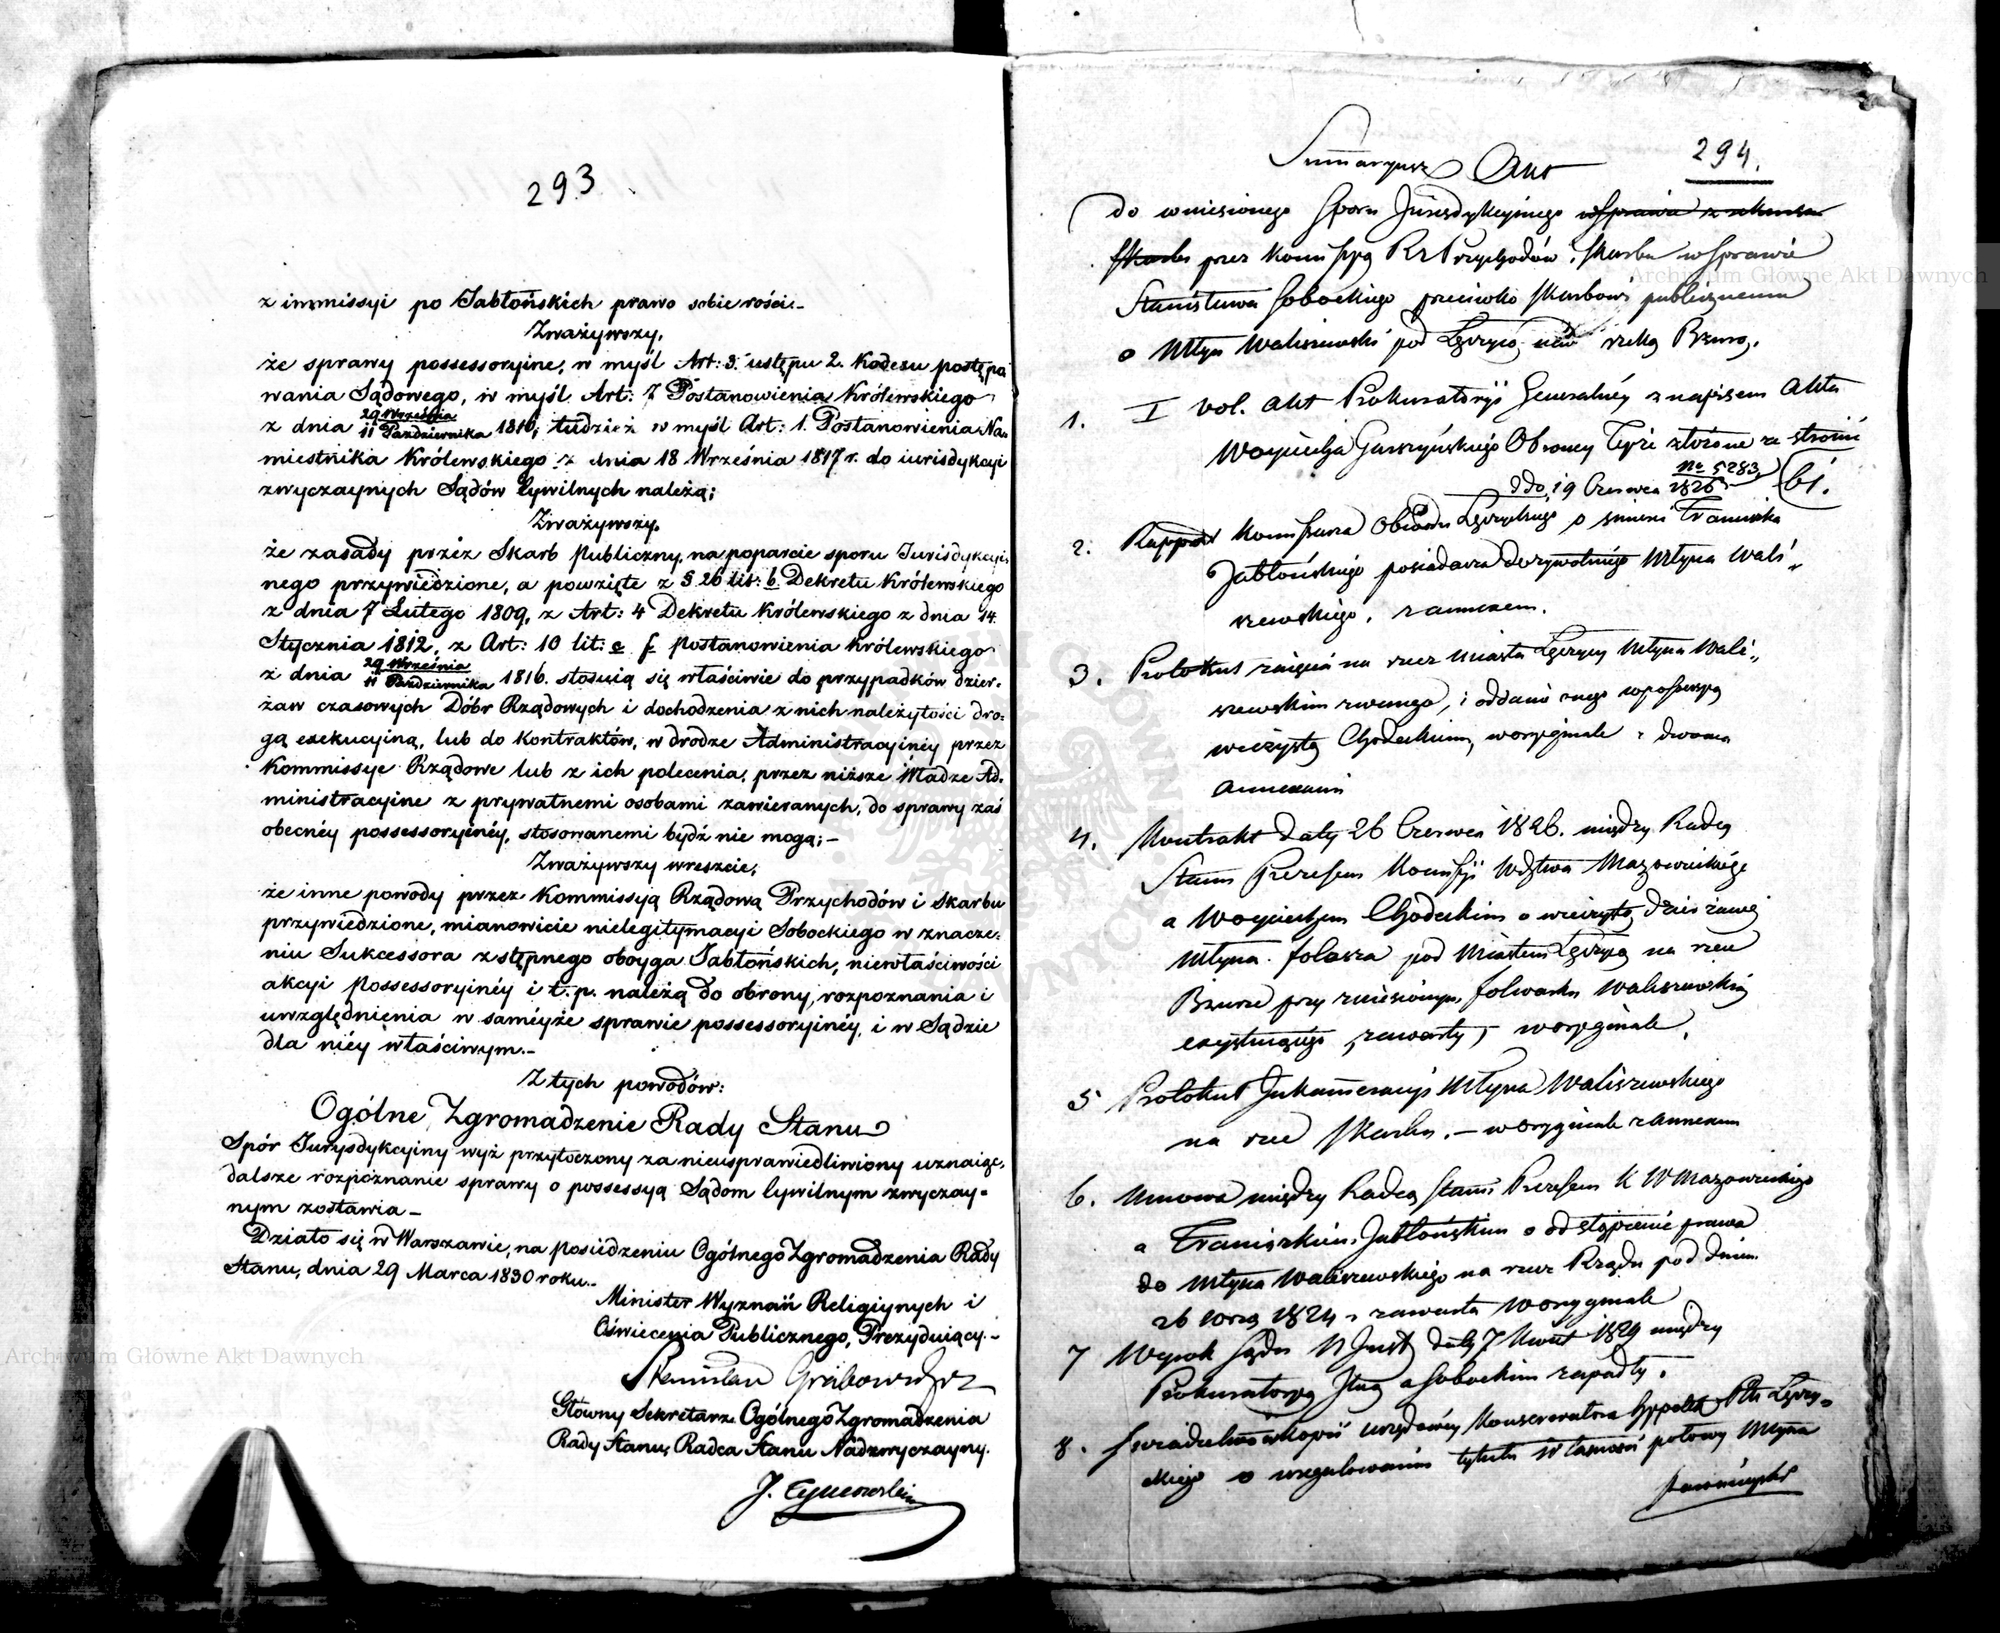 293
z immissyi po Jabłońskich prawo sobie rości.-
Zważywszy,
że sprawy possessoryine, w myśl Art: 3. ustępu 2. Kodexu postępo
wania Sądowego, w myśl Art: 7 Postanowienia Królewskiego
z dnia 29 Września / 11 Października 1816, tudzież w myśl Art: 1. Postanowienia Na-
miestnika Królewskiego z dnia 18 Września 1817 r. do iurisdykcyi
zwyczaynych Sądów Cywilnych należą;
Zważywszy,
że zasady przez Skarb Publiczny, na poparcie sporu Jurisdykcyi-
nego przywiedzione, a powzięte z § 26 lit: b. Dekretu Królewskiego
z dnia 7 Lutego 1809, z Art: 4 Dekretu Królewskiego z dnia 14
Stycznia 1812, z Art: 10 lit: e f Postanowienia Królewskiego
z dnia 29 Września / 11 Października 1816. stosuią się właściwie do przypadków dzier-
żaw czasowych Dóbr Rządowych i dochodzenia z nich należytości dro-
gą exekucyiną, lub do kontraktów, w drodze Administracyinéy przez
Kommissye Rządowe lub z ich polecenia, przez niższe Władze Ad-
ministracyine z prywatnemi osobami zawieranych, do sprawy zaś
obecnéy possessoryinéy, stosowanemi bydź nie mogą;-
Zważywszy wreszcie,
że inne powody przez Kommissyą Rządową Przychodów i Skarbu
przywiedzione, mianowicie nielegitymacyi Sobockiego w znacze-
niu Sukcessora zstępnego oboyga Jabłońskich, niewłaściwości
akcyi Possessoryinéy i t. p. należą do obrony, rozpoznania i
uwzględnienia w saméyże sprawie possessoryinéy, i w Sądzie
dla niéy właściwym.-
Z tych powodów:
Ogólne Zgromadzenie Rady Stanu
Spór Jurysdykcyiny wyż przytoczony za nieusprawiedliwiony uznaiąc,
dalsze rozpoznanie sprawy o possessyą Sądom Cywilnym zwyczay-
nym zostawia-
Działo się w Warszawie, na posiedzeniu Ogólnego Zgromadzenia Rady
Stanu, dnia 29 Marca 1830 roku.-
Minister Wyznań Religiynych i
Oświecenia Publicznego, Prezyduiący.-
Stanisław Grabowski
Główny Sekretarz Ogólnego Zgromadzenia
Rady Stanu, Radca Stanu Nadzwyczayny.
J.
294.
Summaryusz Akt
do wniesionego Sporu Jurisdykcyinego w Sprawie z
Skarbu przez Kommissyą Rz Przychodów i Skarbu w Sprawie
Stanisława Sobockiego przeciwko Skarbowi publicznemu
o Młyn Waliszewski pod Łęczycą nad rzeką Bzurą.
1. I vol. Akt Prokuratoryi Generalnéy z napisem Akta
Woyciecha Garczyńskiego Obrońcy Teyże złożone ze stronic
61.
ddo 19 Czerwca 1826 No 5283
2. Rapport Kommissarza Obwodu Łęczyckiego o śmierci Franciszka
Jabłońskiego posiadacza dożywotniego Młyna Wali-
szewskiego, z annexem.
3. Protokuł zaięcia na rzecz Miasta Łęczycy Młyna Wali-
szewskim zwanego, i oddania onego w possessyą
wieczystą Chodeckiemu, w oryginale z dwoma
annexami
4. Kontrakt daty 26 Czerwca 1826. między Radcą
Stanu Prezesem Kommissyi Wdztwa Mazowieckiego
a Woyciechem Chodeckim o wieczystą dzierżawę
Młyna folusza pod Miastem Łęczycą na rzece
Bzurze przy zniesionym folwarku Waliszewskim
exystuiącego, zawarty, w oryginale.
5 Protokuł Inkameracyi Młyna Waliszewskiego
na rzecz Skarbu.- w oryginale z annexem
6. Umowa między Radcą Stanu Prezesem K W Mazowieckiego
a Franciszkiem Jabłońskim o odstąpienie prawa
do Młyna Waliszewskiego na rzecz Rządu pod dniem
26 1824 r zawarta w oryginale
7 Wyrok Sądu daty 7 Kwiet 1829 między
Prokuratoryą a Sobockim zapadły.
8. Świadectwo w kopii urzędowéy Konserwatora Hypotek Ptu Łęczy-
ckiego o uregulowaniu tytułu Własności połowy Młyna
Archiwum Główne Akt Dawnych
Archiwum Główne Akt Dawnych